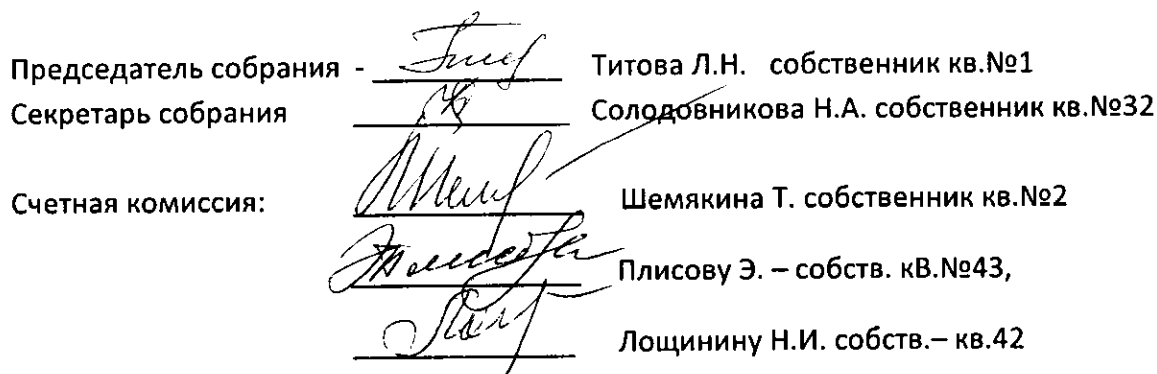 Председатель собрания - Титова Л.Н. собственник кв.№1
Секретарь собрания Солодовникова Н.А. собственник кв.№32
Счетная комиссия: Шемякина Т. собственник кв.№2
Плисову Э. – собств. кВ.№43,
Лощинину Н.И. собств.– кв.42